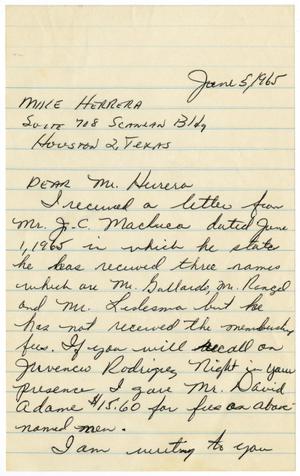 June 5, 1965
MIKE HERRERA
SUITE 708 SCANLAN Bldg
HOUSTON 2, TEXAS
DEAR Mr. Herrera
I received a letter from
Mr. J. C. Machuca dated June
1, 1965 in which he state
he has received three names
which are Mr. Gallardo, Mr. Rangel
and Mr. Ledesma but he
has not received the membership
fees. If you will recall on
Juvencio Rodriguez Night in your
presence I gave Mr. David
Adame $15.60 for fees on above
named men.
I am writing to you